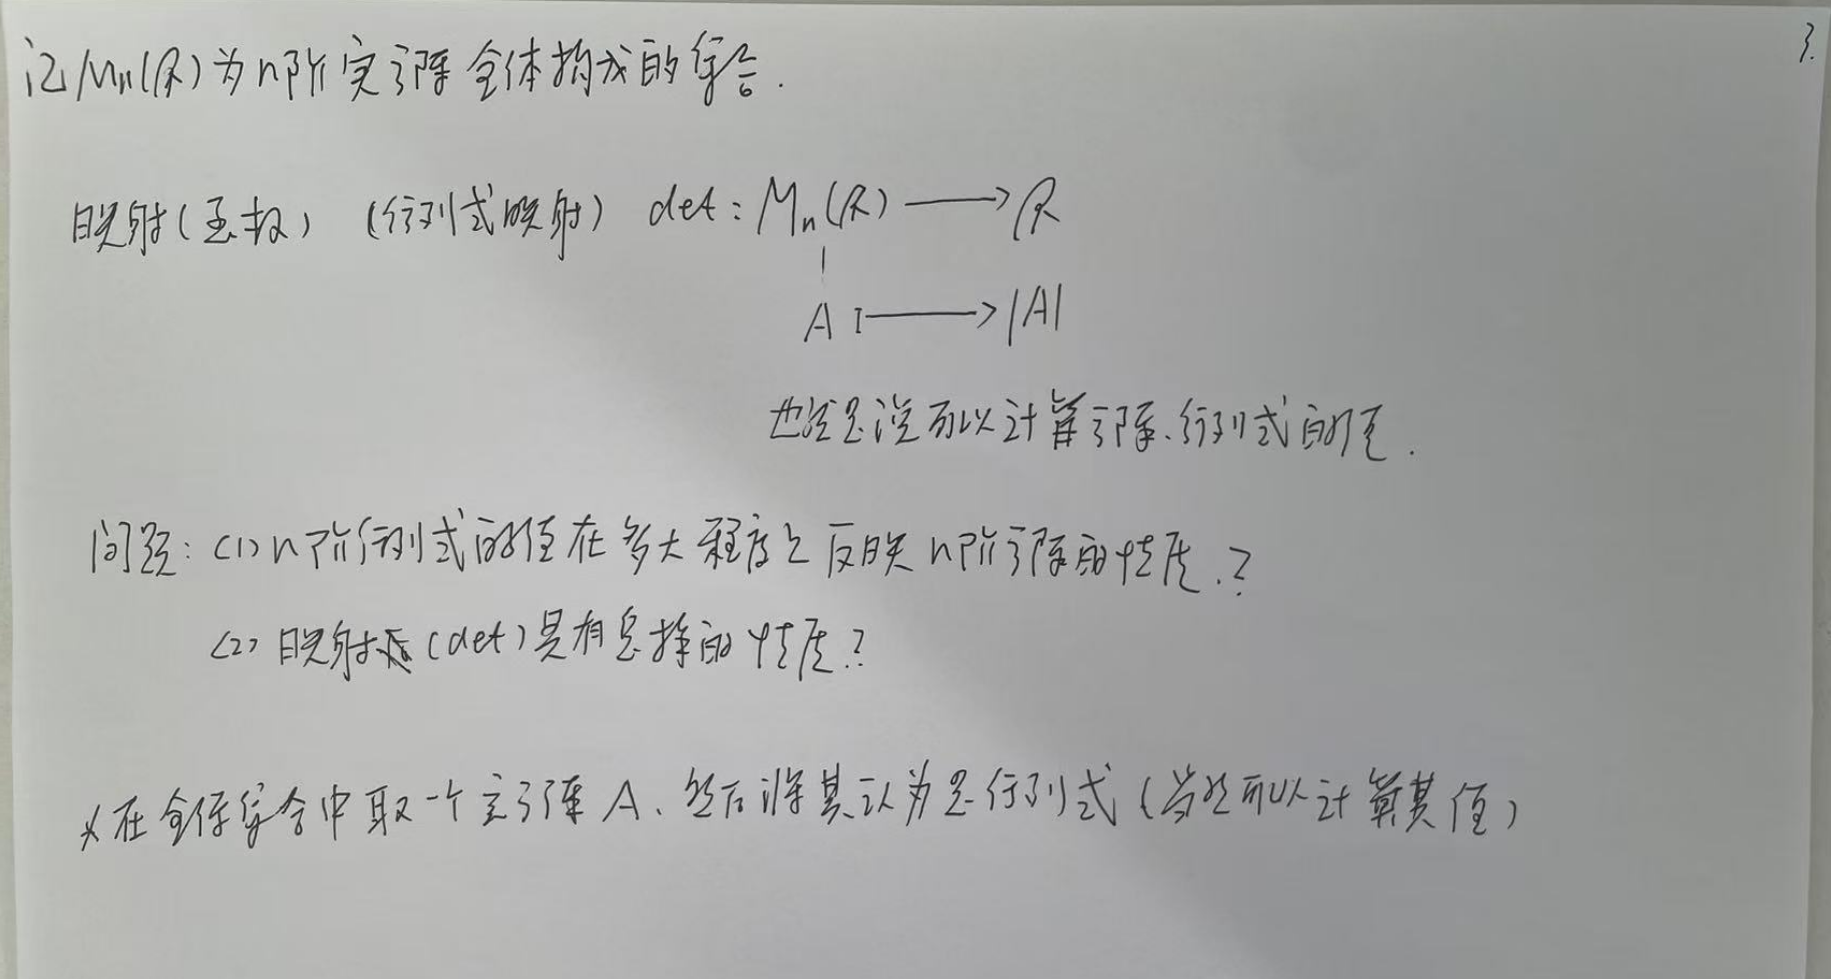 3.
记Mn(R)为n阶实阵全体构成的集合.
映射(函数) (行列式映射) det: Mn(R) ⟶ R
A ⟼ |A|
也就是说可以计算阵.行列式的值.
问题: (1) n阶行列式的值在多大程度上反映n阶阵的性质.?
(2) 映射 (det)具有怎样的性质?
在全体集合中取一个实阵A、然后将其认为是行列式(当然可以计算其值)